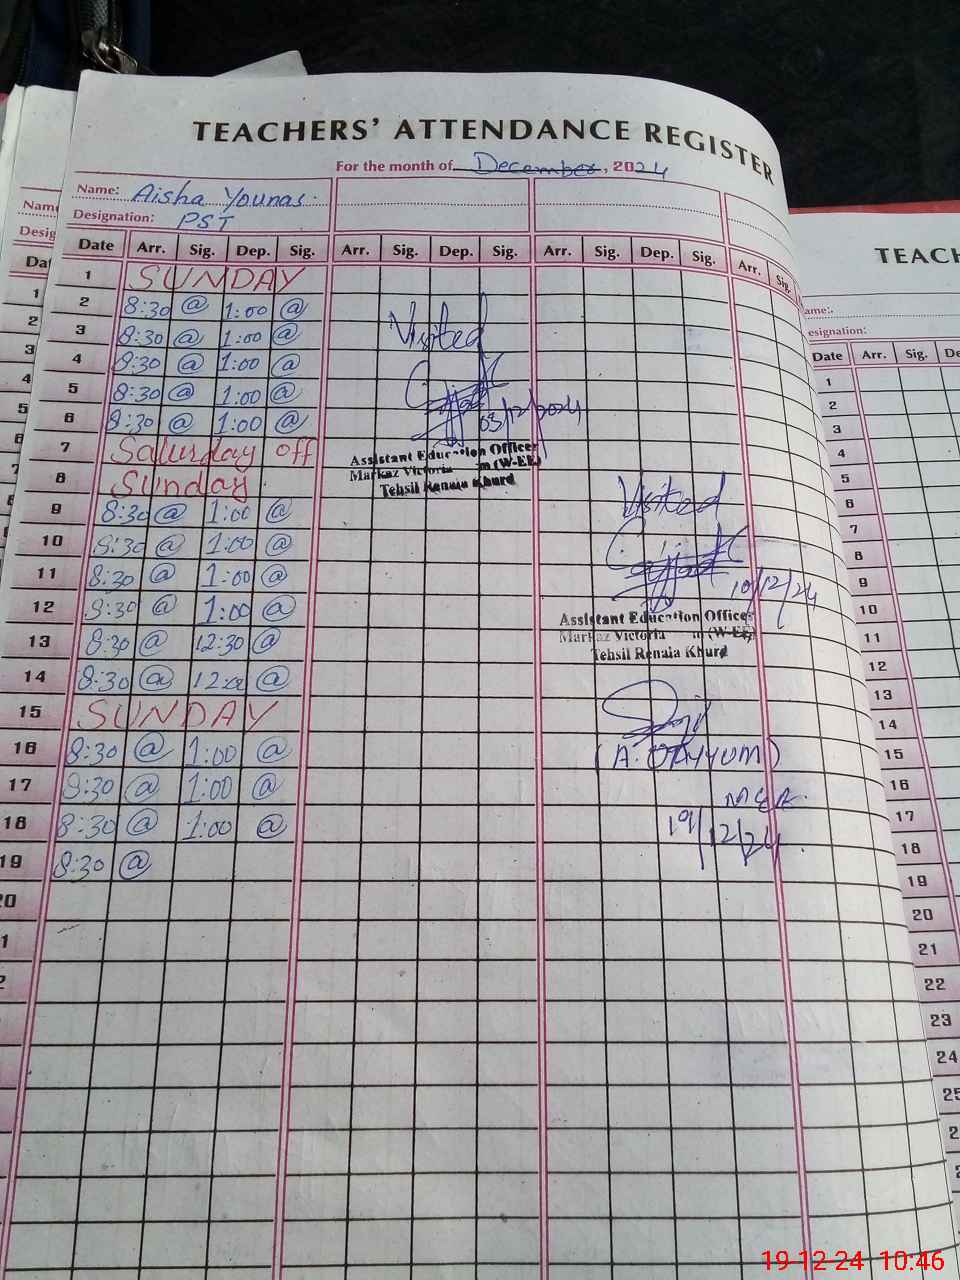 TEACHERS' ATTENDANCE REGISTER
For the month of December, 2024
Name: Aisha Younas.
Designation: PST
Date Arr. Sig. Dep. Sig. Arr. Sig. Dep. Sig. Arr. Sig. Dep. Sig. Arr. Sig.
1 SUNDAY
2 8:30 @ 1:00 @
3 8:30 @ 1:00 @
4 8:30 @ 1:00 @
5 8:30 @ 1:00 @
6 8:30 @ 1:00 @
7 Saturday off
8 Sunday
9 8:30 @ 1:00 @
10 8:30 @ 1:00 @
11 8:30 @ 1:00 @
12 8:30 @ 1:00 @
13 8:30 @ 12:30 @
14 8:30 @ @
15 SUNDAY
16 8:30 @ 1:00 @
17 8:30 @ 1:00 @
18 8:30 @ 1:00 @
19 8:30 @
20
Visited
03/12/2024
Assistant Education Officer
Markaz Victoria (W-EE)
Tehsil Renala Khurd
Visited
10/12/24
Assistant Education Officer
Markaz Victoria (W-EE)
Tehsil Renala Khurd
(A. QAYYUM)
MEA.
19/12/24.
TEACH
ame:
esignation:
Date Arr. Sig. De
1
2
3
4
5
6
7
8
9
10
11
12
13
14
15
16
17
18
19
20
21
22
23
24
25
19-12-24 10:46